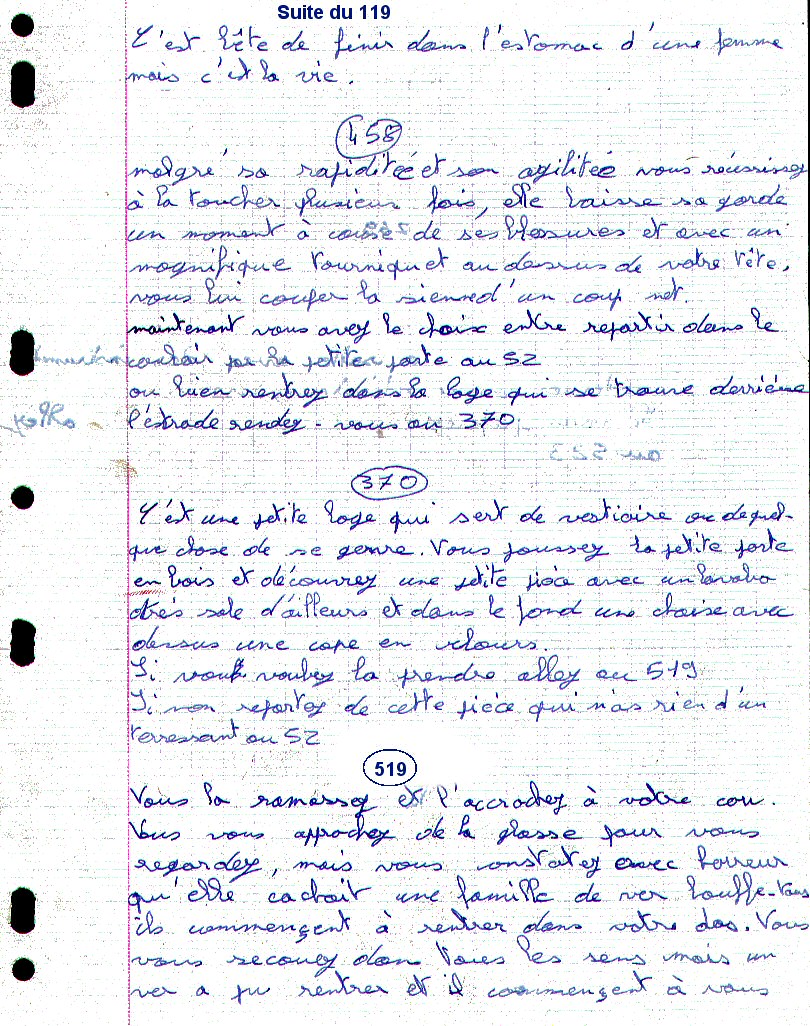 Suite du 119
C'est bête de finir dans l'estomac d'une femme
mais c'est la vie.
458
malgré sa rapiditée et son agilitée vous réussissez
à la toucher plusieurs fois, elle baisse sa garde
un moment à cause de ses blessures et avec un
magnifique tourniquet au dessus de votre tête,
vous lui couper la sienne d'un coup net.
maintenant vous avez le choix entre repartir dans le
couloir par la petite porte au 52
ou bien rentrez dans la loge qui se trouve derrière
l'éstrade rendez-vous au 370.
370
C'est une petite loge qui sert de vestiaire ou de quel-
que chose de se genre. Vous poussez la petite porte
en bois et découvrez une petite pièce avec un lavabo
très sale d'ailleurs et dans le fond une chaise avec
dessus une cape en velours.
Si vous voulez la prendre allez au 519
Si non repartez de cette pièce qui n'as rien d'un
terressant au 52
519
Vous la ramassez et l'accrochez à votre cou.
Vous vous approchez de la glasse pour vous
regardez, mais vous constatez avec horreur
qu'elle cachait une famille de ver bouffe-tous
ils commençent à rentrer dans votre dos. Vous
vous secouez dans tous les sens mais un
ver a pu rentrer et il commençent à vous